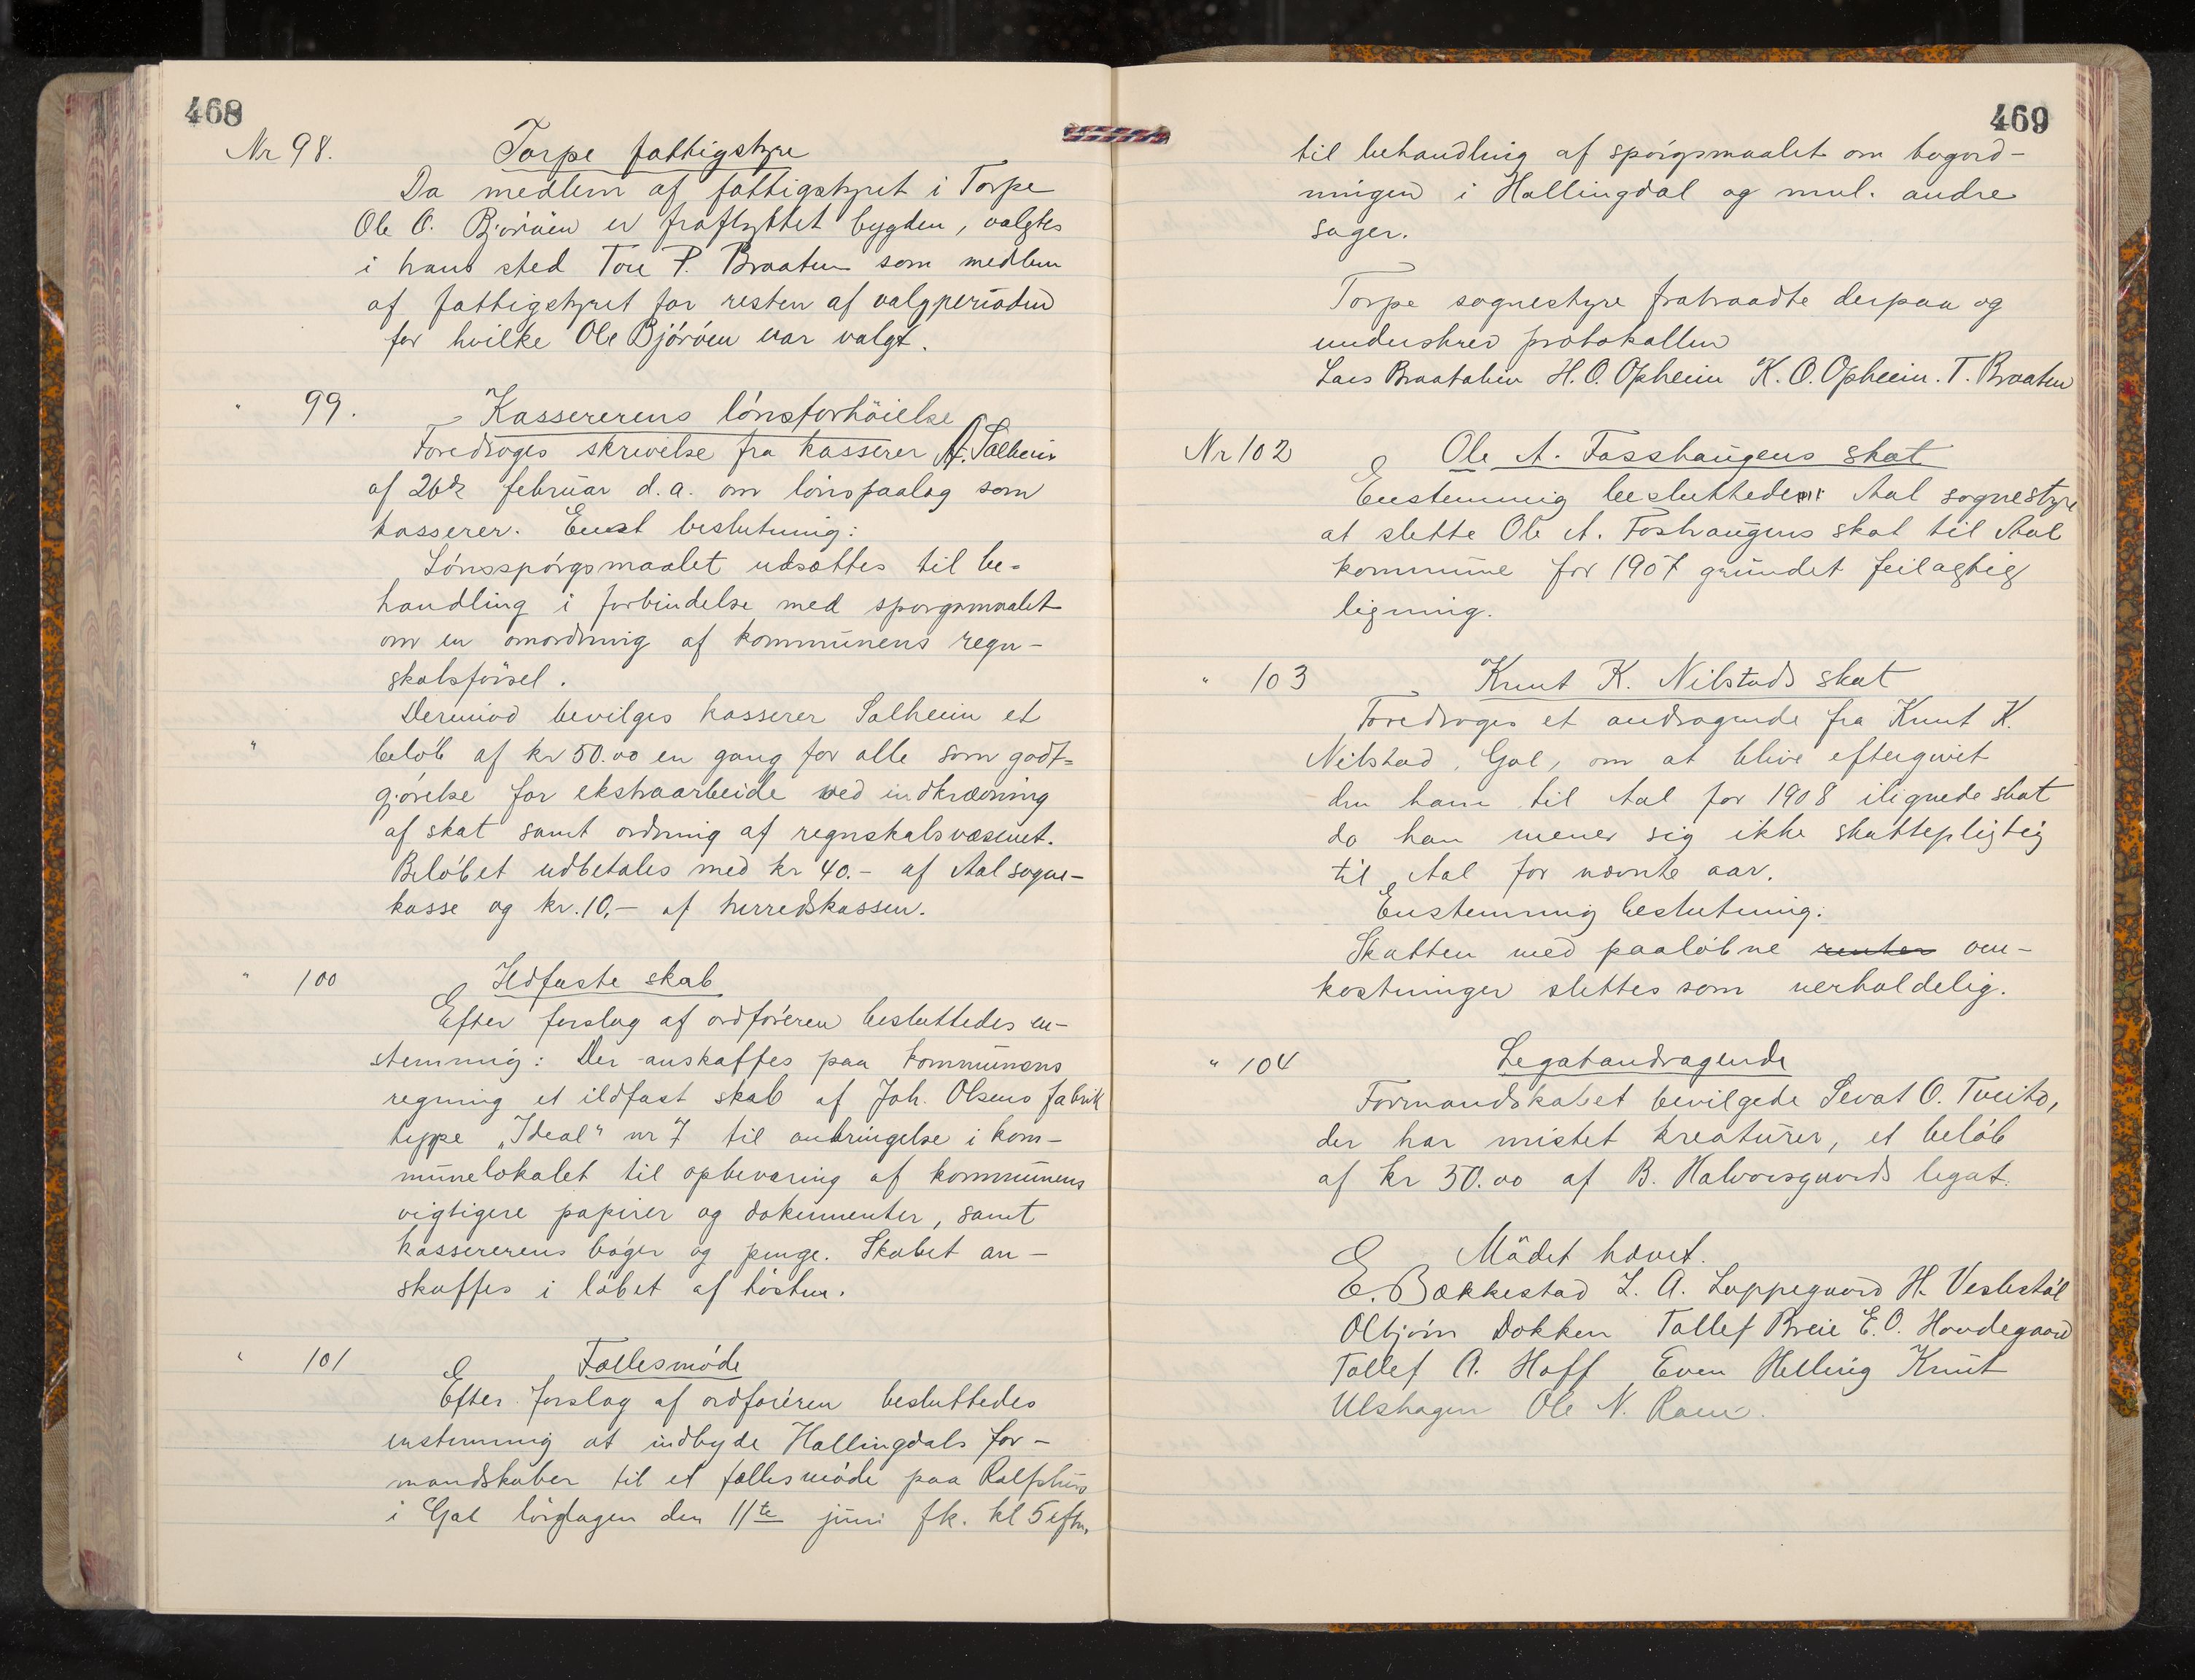 468
Nr 98.
Torpe fattigstyre
Da medlem af fattigstyret i Torpe
Ole O. Björöen er fraflyttet bygden, valgtes
i hans sted Tore P. Braaten som medlem
af fattigstyret for resten af valgperioden
for hvilke Ole Björöen var valgt.
" 99.
Kassererens lönsforhöielse
Foredroges skrivelse fra kasserer A. Salheim
af 26de februar d.a. om lönspaalag som
kasserer. Enst beslutning:
Lönsspörgsmaalet udsættes til be-
handling i forbindelse med spörgsmaalet
om en omordning af kommunens regn-
skabsförsel.
Derimod bevilges kasserer Salheim et
" belöb af kr 50.00 en gang for alle som godt-
gjörelse for ekstraarbeide ved indkrævning
af skat samt ordning af regnskabsvæsenet.
Belöbet udbetales med kr 40.- af Aal sogne-
kasse og kr. 10,- af herredskassen.
" 100
Ildfaste skab
Efter forslag af ordföreren besluttedes en-
stemmig: Der anskaffes paa kommunens
regning et ildfast skab af Joh. Olsens fabrik
type „Ideal" nr 7 til anbringelse i kom-
munelokalet til opbevaring af kommunens
vigtigere papirer og dokumenter, samt
kassererens böger og penge. Skabet an-
skaffes i löbet af hösten.
" 101
Fællesmöde
Efter forslag af ordföreren besluttedes
enstemmig at indbyde Hallingdals for-
mandskaber til et fællesmöde paa Rolfshus
i Gol lördagen den 11te juni fk. kl 5 eftm.
469
til behandling af spörgsmaalet om
ningen i Hallingdal og mul. andre
sager.
Torpe sognestyre fratraadte derpaa og
underskrev protokollen
Lars Braatalien H. O. Opheim K. O. Opheim. T. Braaten
Nr 102
Ole A. Fosshaugens skat
Enstemmig besluttede Aal sognestyre
at slette Ole A. Foshaugens skat til Aal
kommune for 1907 grundet feilagtig
ligning.
" 103
Knut K. Nilstads skat
Foredroges et andragende fra Knut K.
Nilstad, Gol, om at blive eftergivet
den ham til Aal for 1908 ilignede skat
da han mener sig ikke skattepligtig
til Aal for nævnte aar.
Enstemmig beslutning:
Skatten med paalöbne renter om-
kostninger slettes som uerholdelig.
" 104
Legatandragende
Formandskabet bevilgede Sevat O. Tveito,
der har mistet kreaturer, et belöb
af kr 50.00 af B. Halvorsgaards legat.
Mödet hævet.
E. Bækkestad L. A. Loppegaard H. Veslestöl
Olbjörn Dokken Tollef Breie E. O. Hovdegaard
Tollef A. Hoff Even Helling Knut
Ulshagen Ole N.